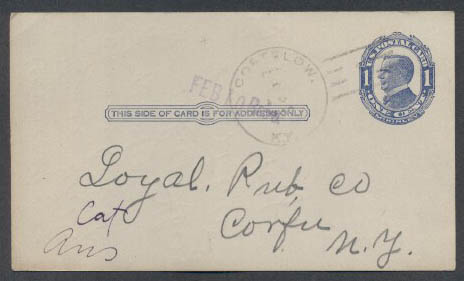 U.S. POSTAL CARD
1 1
ONE CENT
COSTELOW.
KY.
FEB
THIS SIDE OF CARD IS FOR ADDRESS ONLY
Loyal. Pub, Co
Cat Corfu
Ans N.Y.